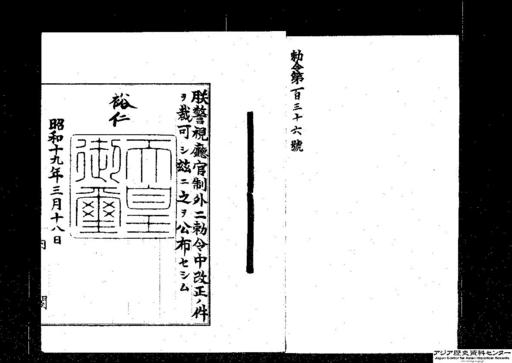 勅令第百三十六號
朕警視廳官制外二勅令中改正ノ件
ヲ裁可シ茲ニ之ヲ公布セシム
裕仁
天皇
御璽
昭和十九年三月十八日
内
閣
アジア歴史資料センター
Japan Center for Asian Historical Records